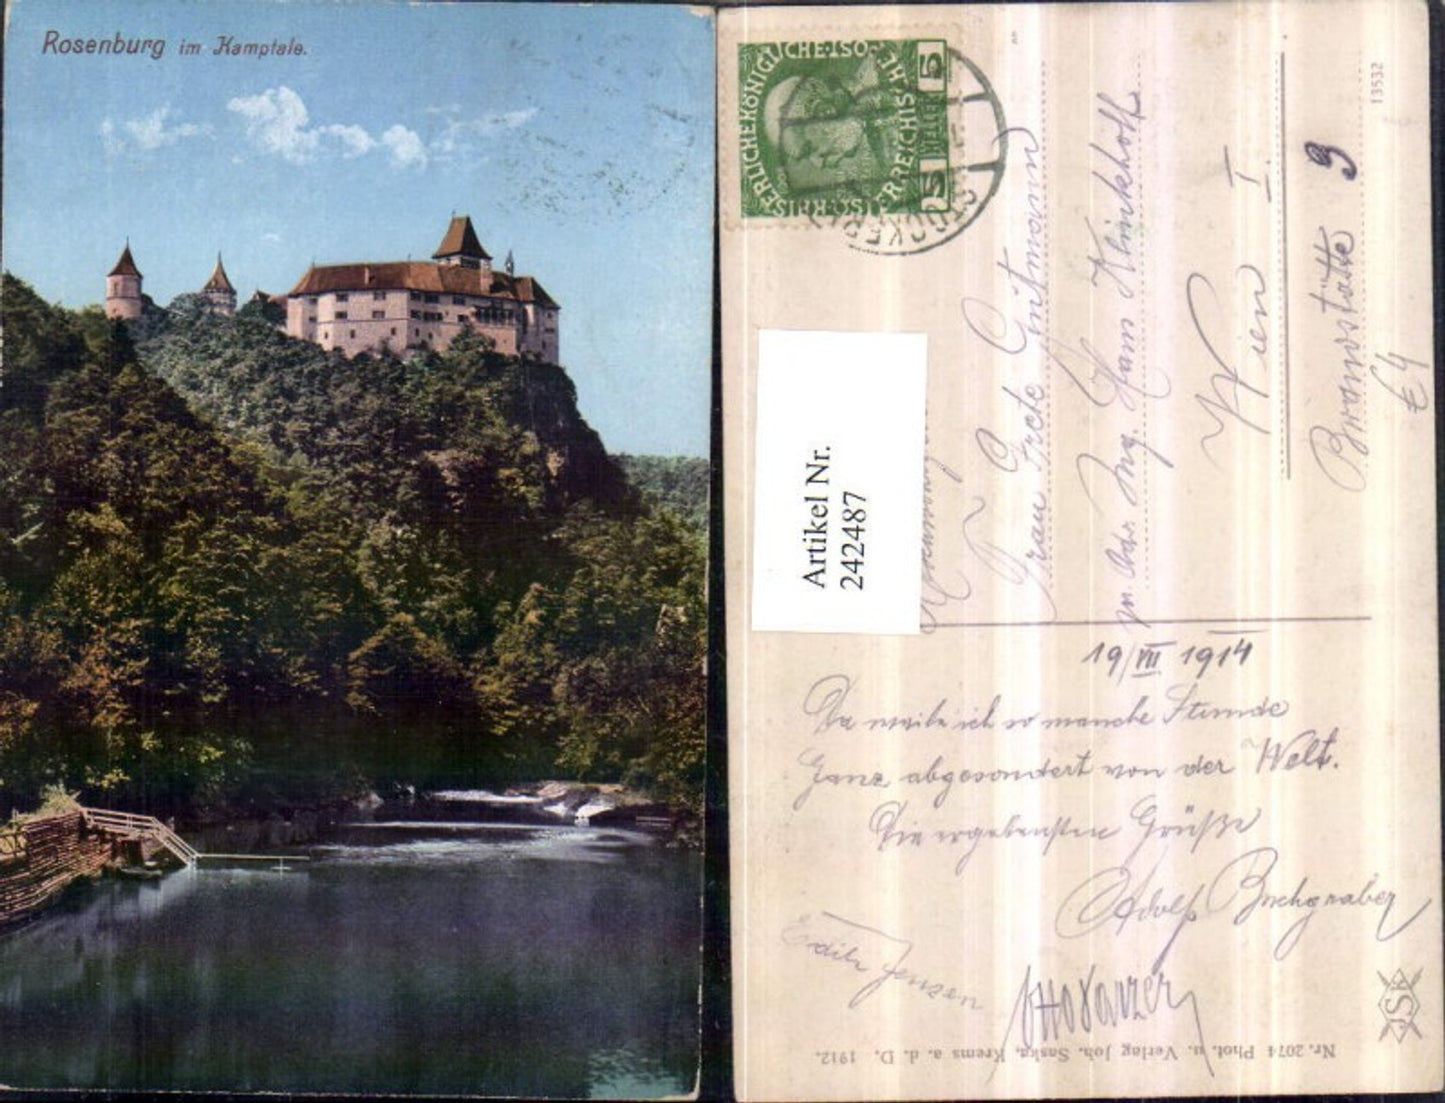 Rosenburg im Kamptale.
KAISERLICHE KÖNIGLICHE ÖSTERREICHISCHE
5 HELLER 5
STOCKERAU
Artikel Nr.
242487
Frau Grete Gritmann
Ing. Hans Klinkhoff
Wien I.
Brandstätte 9
13532
€ 4
19/VII 1914
Da weile ich so manche Stunde
Ganz abgesondert von der Welt.
Die ergebensten Grüße
Adolf Buchgraber
Edith Jensen
Nr. 2074 Phot. u. Verlag Joh. Saska, Krems a. d. D. 1912.